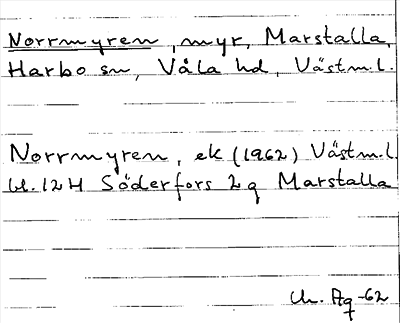 Norrmyren, myr, Marstalla,
Harbo sn, Våla hd, Västm.l.
Norrmyren, ek (1962) Västm.l.
bl. 12H Söderfors 2g Marstalla
-62